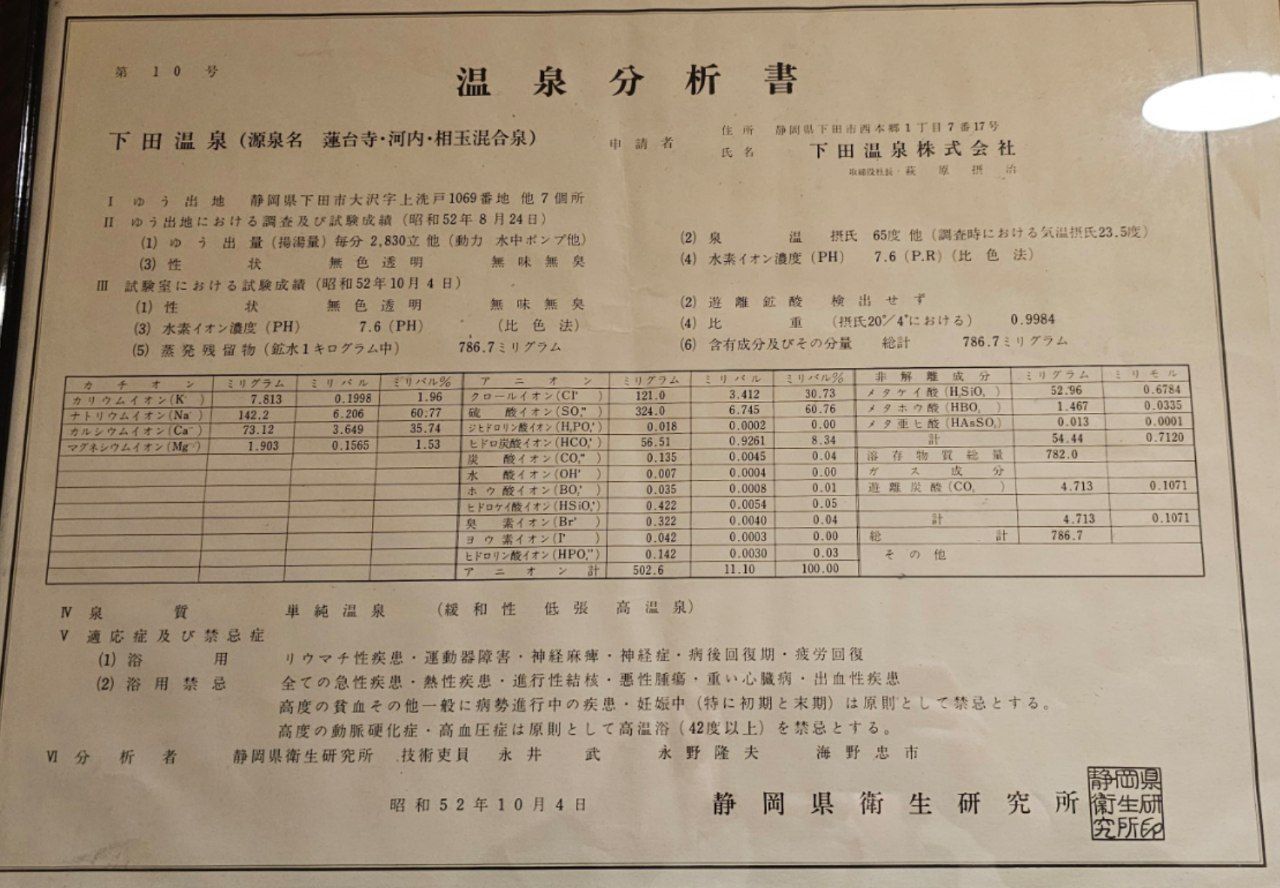 第 10 号
温泉分析書
下田温泉(源泉名 蓮台寺・河内・相玉混合泉)
申請者
住所 静岡県下田市西本郷1丁目7番17号
氏名 下田温泉株式会社
取締役社長・萩原 摂治
I ゆう出地 静岡県下田市大沢字上洗戸1069番地 他7個所
II ゆう出地における調査及び試験成績(昭和52年8月24日)
(1) ゆう出量(揚湯量)毎分 2,830立 他(動力 水中ポンプ他)
(2) 泉温 摂氏 65度 他(調査時における気温摂氏23.5度)
(3) 性状 無色透明 無味無臭
(4) 水素イオン濃度(PH) 7.6(P.R)(比色法)
III 試験室における試験成績(昭和52年10月4日)
(1) 性状 無色透明 無味無臭
(2) 遊離鉱酸 検出せず
(3) 水素イオン濃度(PH) 7.6(PH) (比色法)
(4) 比重 (摂氏20°/4°における) 0.9984
(5) 蒸発残留物(鉱水1キログラム中) 786.7ミリグラム
(6) 含有成分及びその分量 総計 786.7ミリグラム
カチオン ミリグラム ミリバル ミリバル%
カリウムイオン(K˙) 7.813 0.1998 1.96
ナトリウムイオン(Na˙) 142.2 6.206 60.77
カルシウムイオン(Ca¨) 73.12 3.649 35.74
マグネシウムイオン(Mg¨) 1.903 0.1565 1.53
アニオン ミリグラム ミリバル ミリバル%
クロールイオン(Cl') 121.0 3.412 30.73
硫酸イオン(SO₄'') 324.0 6.745 60.76
ジヒドロリン酸イオン(H₂PO₄') 0.018 0.0002 0.00
ヒドロ炭酸イオン(HCO₃') 56.51 0.9261 8.34
炭酸イオン(CO₃'') 0.135 0.0045 0.04
水酸イオン(OH') 0.007 0.0004 0.00
ホウ酸イオン(BO₂') 0.035 0.0008 0.01
ヒドロケイ酸イオン(HSiO₃') 0.422 0.0054 0.05
臭素イオン(Br') 0.322 0.0040 0.04
ヨウ素イオン(I') 0.042 0.0003 0.00
ヒドロリン酸イオン(HPO₄'') 0.142 0.0030 0.03
アニオン計 502.6 11.10 100.00
非解離成分 ミリグラム ミリモル
メタケイ酸(H₂SiO₃) 52.96 0.6784
メタホウ酸(HBO₂) 1.467 0.0335
メタ亜ヒ酸(HAsO₂) 0.013 0.0001
計 54.44 0.7120
溶存物質総量 782.0
ガス成分
遊離炭酸(CO₂) 4.713 0.1071
計 4.713 0.1071
総計 786.7
その他
IV 泉質 単純温泉 (緩和性 低張 高温泉)
V 適応症及び禁忌症
(1) 浴用 リウマチ性疾患・運動器障害・神経麻痺・神経症・病後回復期・疲労回復
(2) 浴用禁忌 全ての急性疾患・熱性疾患・進行性結核・悪性腫瘍・重い心臓病・出血性疾患
高度の貧血その他一般に病勢進行中の疾患・妊娠中(特に初期と末期)は原則として禁忌とする。
高度の動脈硬化症・高血圧症は原則として高温浴(42度以上)を禁忌とする。
VI 分析者 静岡県衛生研究所 技術吏員 永井 武 永野隆夫 海野忠市
昭和52年10月4日
静岡県衛生研究所
静岡県衛生研究所印